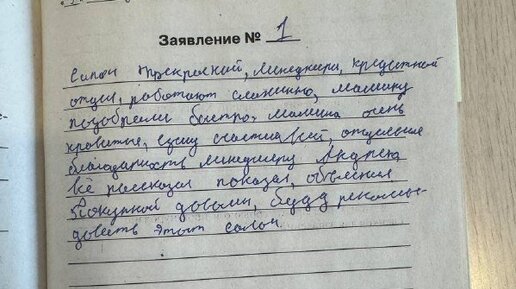 Заявление № 1
Салон прекрасный, менеджера, кредитной
отдел, работают слаженно, машину
подобрали быстро, машина очень
нравится, сижу счастливый, отдельная
благодарность менеджеру Андрею
все рассказал показал, объяснил
Покупкой доволен, буду рекомен-
довать этот салон